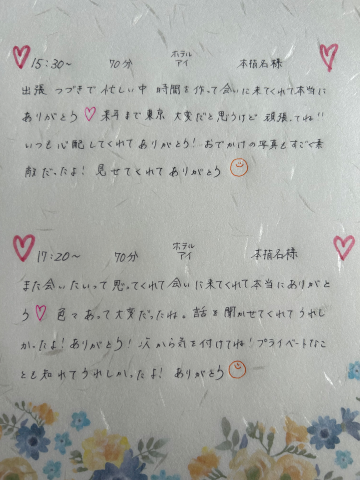 15:30~ 70分 ホテル アイ 本指名様
出張つづきで忙しい中 時間を作って会いに来てくれて本当に
ありがとう♡ 来月まで東京 大変だと思うけど 頑張ってね!!
いつも心配してくれてありがとう! おでかけの写真もすごく素
敵だったよ! 見せてくれてありがとう
17:20~ 70分 ホテル アイ 本指名様
また会いたいって思ってくれて会いに来てくれて本当にありがと
う♡ 色々あって大変だったね。話を聞かせてくれてうれし
かったよ! ありがとう! 次から気を付けてね! プライベートなこ
とも知れてうれしかったよ! ありがとう